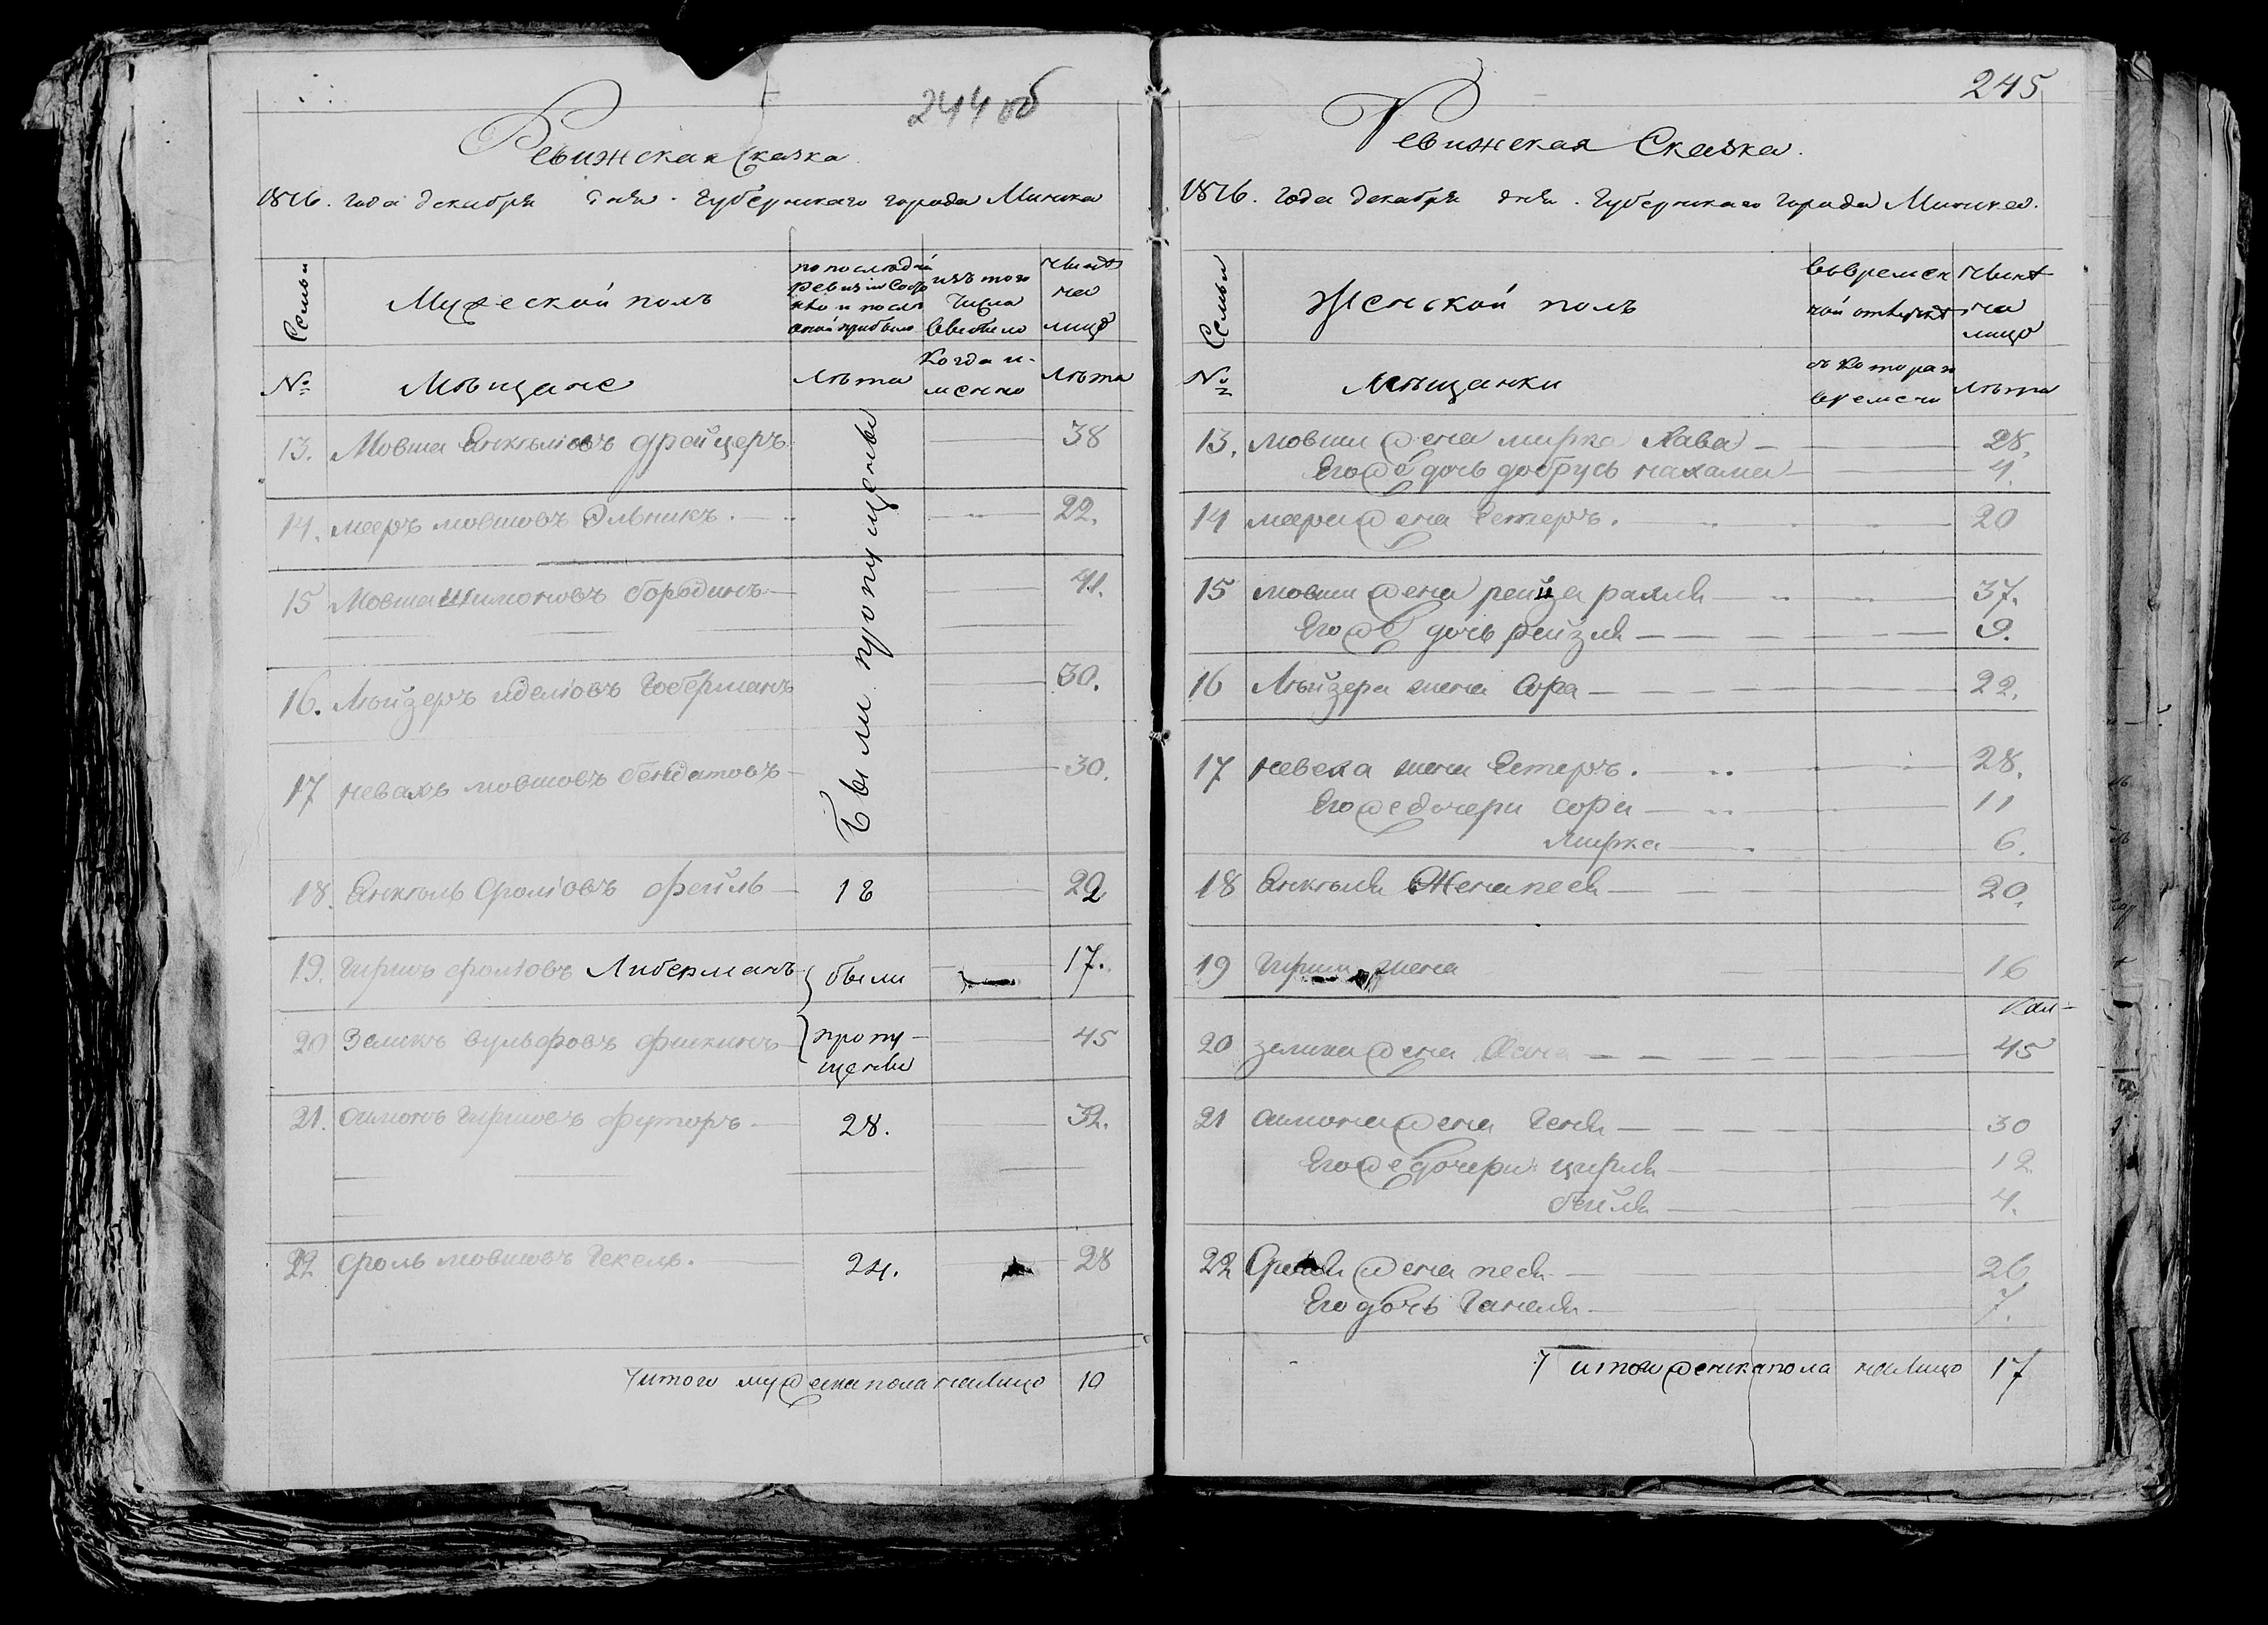 244 об
Ревижская Сказка.
1816. года декабря дня. Губернскаго города Минска
Семьи
Мужеской полъ
по последней ревизіи состояло и после оной прибыло
изъ того числа выбыло
ныне на лицо
№
Мещане
Лета
Когда именно
Лета
Были пропущены
13. Мовша Янкелiовъ Дрейцеръ 38
14. Мееръ Мовшовъ Эльникъ. 22.
15 Мовша Шимоновъ Бородинъ 41.
16. Лейзеръ Иделiовъ Гоберманъ 30.
17 Невахъ Мовшовъ 30.
18. Янкель Сролiовъ Фейль 18 22
19. Гиршъ Сролiовъ Либерманъ были 17.
20 Зеликъ Вульфовъ Фискинъ пропущены 45
21. Симонъ Гиршовъ Футоръ 28. 32.
22 Сроль Мовшовъ Гекель. 24. 28
Итого мужеска пола налицо 10
245
Ревижская Сказка.
1816. года декабря дня. Губернскаго города Минска.
Семьи
Женской полъ
во временной отлучке
ныне на лицо
№
Мещанки
съ котораго времени
Лета
13. Мовши жена Мирка Хава 28.
Его же дочь Добрусь Нахама 4.
14 Меера жена Естеръ. 20
15 Мовши жена Рейза 37.
Его же дочь Рейзля 9.
16 Лейзера жена Сора 22.
17 Неваха жена Естеръ. 28.
Его же дочери Сора 11
Мирка 6.
18 Янкеля Жена Песя 20.
19 Гирши жена 16
20 Зелика жена 45
21 Симона жена Геня 30
Его же дочери Цирля 12
Бейля 4.
22 Сроля жена Песя 26
Его дочь Ганеля 7.
Итого женска пола налицо 17